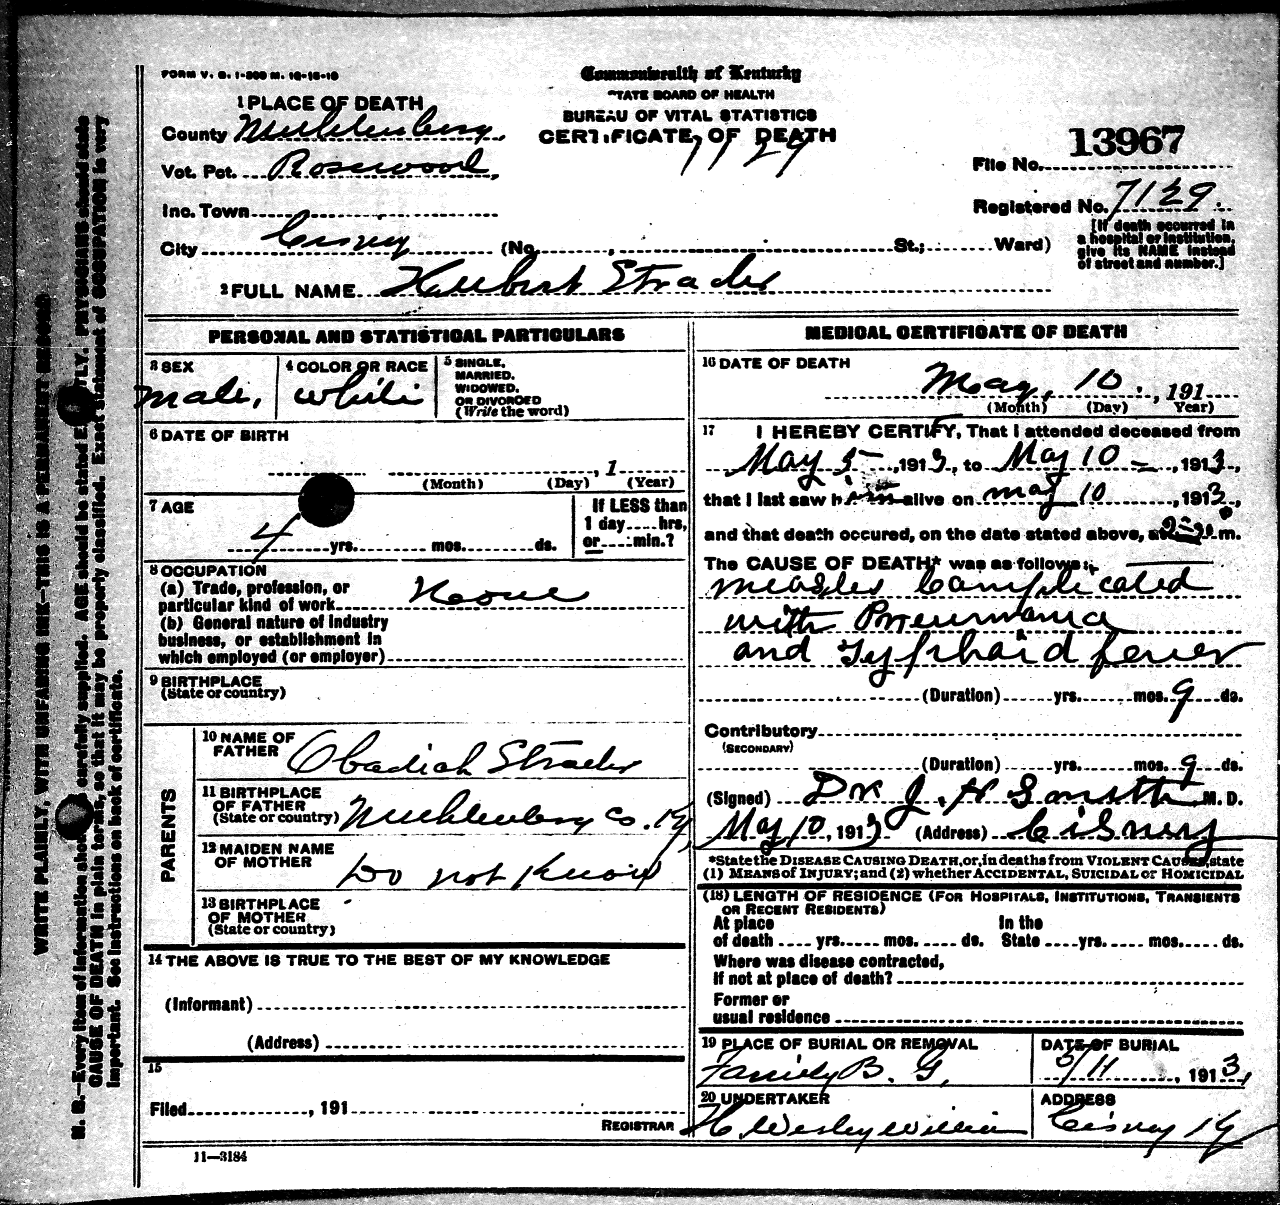 FORM V. S. 1-500 M. 10-16-10
Commonwealth of Kentucky
STATE BOARD OF HEALTH
BUREAU OF VITAL STATISTICS
CERTIFICATE OF DEATH
7129
1 PLACE OF DEATH
County Muhlenberg,
Vot. Pct. Rosewood,
Inc. Town
City Cisney (No. , St.; Ward)
File No. 13967
Registered No. 7129.
[If death occurred in
a hospital or institution,
give its NAME instead
of street and number.]
2 FULL NAME Hubert Strader
PERSONAL AND STATISTICAL PARTICULARS
3 SEX
Male,
4 COLOR OR RACE
White
5 SINGLE,
MARRIED,
WIDOWED,
OR DIVORCED
(Write the word)
6 DATE OF BIRTH
, 1
(Month) (Day) (Year)
7 AGE
4 yrs. mos. ds.
If LESS than
1 day....hrs,
or....min.?
8 OCCUPATION
(a) Trade, profession, or
particular kind of work None
(b) General nature of industry
business, or establishment in
which employed (or employer)
9 BIRTHPLACE
(State or country)
PARENTS
10 NAME OF
FATHER Obadiah Strader
11 BIRTHPLACE
OF FATHER
(State or country) Muhlenberg Co. Ky,
12 MAIDEN NAME
OF MOTHER Do not Know
13 BIRTHPLACE
OF MOTHER
(State or country)
14 THE ABOVE IS TRUE TO THE BEST OF MY KNOWLEDGE
(Informant)
(Address)
15
Filed , 191
REGISTRAR
11—3184
MEDICAL CERTIFICATE OF DEATH
16 DATE OF DEATH
May, 10. , 191
(Month) (Day) (Year)
17 I HEREBY CERTIFY, That I attended deceased from
May 5 , 1913, to May 10 , 1913,
that I last saw him alive on May 10 1913,
and that death occured, on the date stated above, at m.
The CAUSE OF DEATH* was as follows:
Measles Complicated
with Pneumonia
and Typhoid fever
(Duration) yrs. mos. 9 ds.
Contributory
(SECONDARY)
(Duration) yrs. mos. 9 ds.
(Signed) Dr J. H Smith M. D.
May 10, 1913 (Address) Cisney
*State the DISEASE CAUSING DEATH, or, in deaths from VIOLENT CAUSES, state
(1) MEANS of INJURY; and (2) whether ACCIDENTAL, SUICIDAL or HOMICIDAL
(18) LENGTH OF RESIDENCE (FOR HOSPITALS, INSTITUTIONS, TRANSIENTS
OR RECENT RESIDENTS)
At place In the
of death .... yrs. mos. ds. State yrs. mos. ds.
Where was disease contracted,
If not at place of death?
Former or
usual residence
19 PLACE OF BURIAL OR REMOVAL
Family B. G,
DATE OF BURIAL
5/11 , 1913,
20 UNDERTAKER
H. Wesley
ADDRESS
Cisney Ky
WRITE PLAINLY, WITH UNFADING INK—THIS IS A PERMANENT RECORD
N. B.—Every item of information should be carefully supplied. AGE should be stated EXACTLY. PHYSICIANS should state
CAUSE OF DEATH in plain terms, so that it may be properly classified. Exact statement of OCCUPATION is very
important. See instructions on back of certificate.